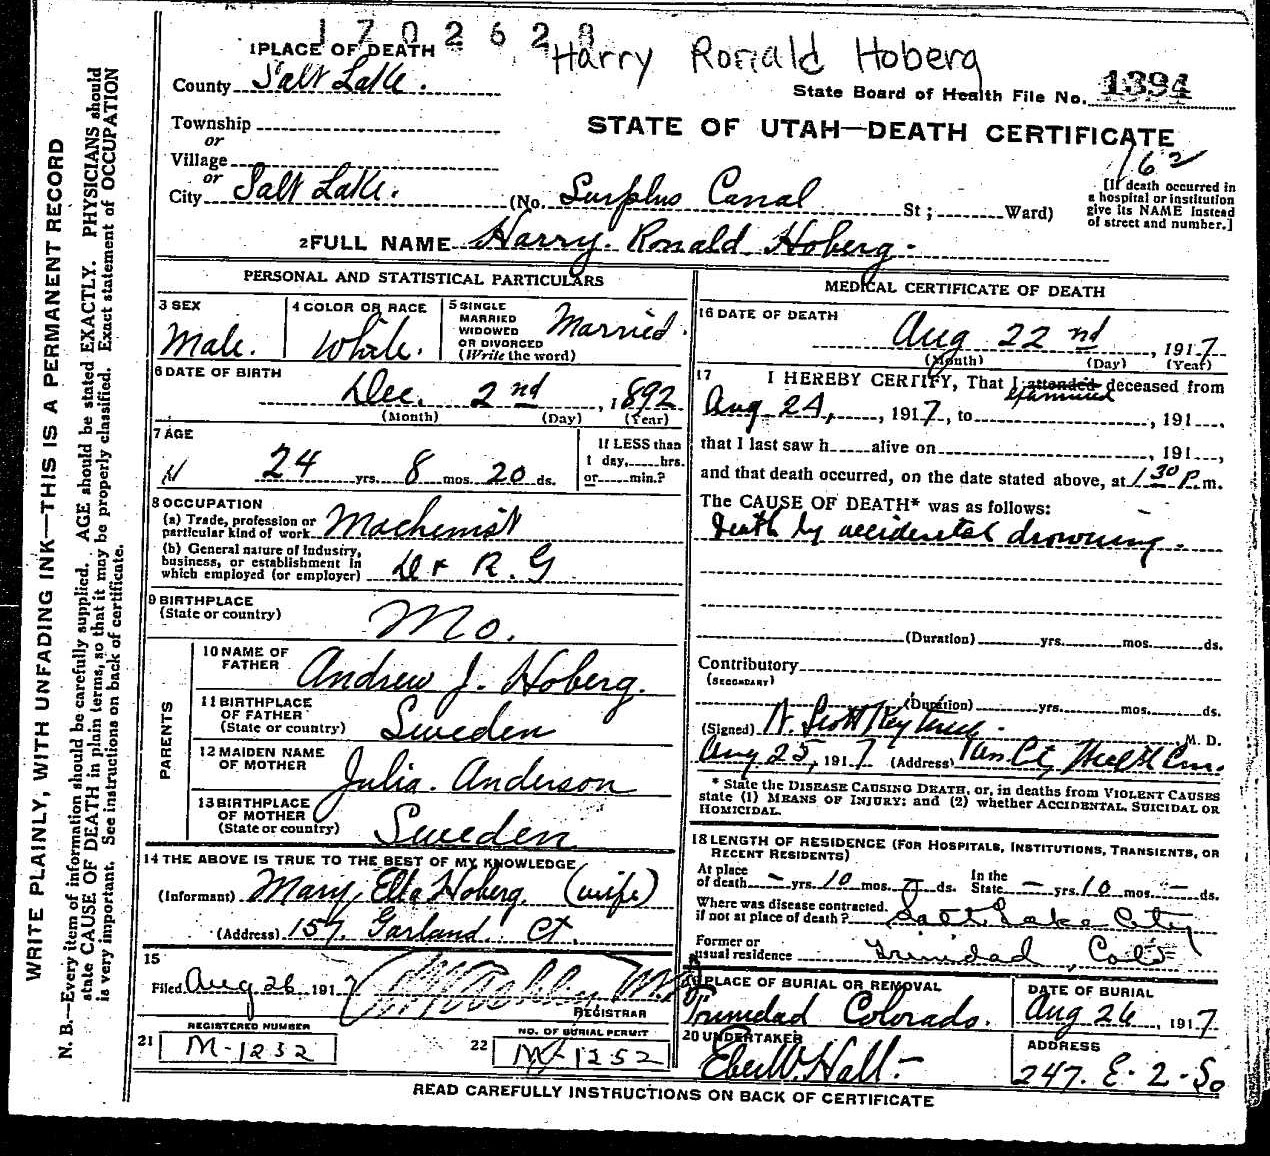 1702628
Harry Ronald Hoberg
1 PLACE OF DEATH
County Salt Lake.
State Board of Health File No. 1394
Township
or
Village
or
City Salt Lake. (No. Surplus Canal St; Ward)
STATE OF UTAH—DEATH CERTIFICATE
162
[If death occurred in
a hospital or institution
give its NAME instead
of street and number.]
2 FULL NAME Harry Ronald Hoberg.
PERSONAL AND STATISTICAL PARTICULARS
3 SEX
Male.
4 COLOR OR RACE
White.
5 SINGLE
MARRIED
WIDOWED
OR DIVORCED
(Write the word)
Married.
6 DATE OF BIRTH
Dec. 2nd, 1892
(Month) (Day) (Year)
7 AGE
24 yrs. 8 mos. 20 ds.
If LESS than
1 day, hrs.
or min.?
8 OCCUPATION
(a) Trade, profession or
particular kind of work Machenist
(b) General nature of industry,
business, or establishment in
which employed (or employer) D & R. G
9 BIRTHPLACE
(State or country) Mo.
PARENTS
10 NAME OF
FATHER Andrew J. Hoberg.
11 BIRTHPLACE
OF FATHER
(State or country) Sweden
12 MAIDEN NAME
OF MOTHER Julia Anderson
13 BIRTHPLACE
OF MOTHER
(State or country) Sweden
14 THE ABOVE IS TRUE TO THE BEST OF MY KNOWLEDGE
(Informant) Mary Ella Hoberg. (wife)
(Address) 157. Garland Ct.
15
Filed Aug 26 1917
REGISTRAR
REGISTERED NUMBER
21 M-1252
NO. OF BURIAL PERMIT
22 M-1252
MEDICAL CERTIFICATE OF DEATH
16 DATE OF DEATH
Aug 22nd, 1917
(Month) (Day) (Year)
17 I HEREBY CERTIFY, That I attended deceased from
examined
Aug 24, , 1917, to , 191 ,
that I last saw h alive on , 191 ,
and that death occurred, on the date stated above, at 1 30 P. m.
The CAUSE OF DEATH* was as follows:
Death by accidental drowning.
(Duration) yrs. mos. ds.
Contributory
(SECONDARY)
(Duration) yrs. mos. ds.
(Signed) M. D.
Aug 25, 1917 (Address)
* State the DISEASE CAUSING DEATH, or, in deaths from VIOLENT CAUSES
state (1) MEANS OF INJURY; and (2) whether ACCIDENTAL, SUICIDAL OR
HOMICIDAL.
18 LENGTH OF RESIDENCE (FOR HOSPITALS, INSTITUTIONS, TRANSIENTS, OR
RECENT RESIDENTS)
At place
of death - yrs. 10 mos. - ds.
In the
State - yrs. 10 mos. - ds.
Where was disease contracted,
if not at place of death? Salt Lake City
Former or
usual residence Trinidad, Colo
19 PLACE OF BURIAL OR REMOVAL
Trinidad Colorado.
DATE OF BURIAL
Aug 26, 1917
20 UNDERTAKER
Eber W. Hall.
ADDRESS
247. E. 2. So
READ CAREFULLY INSTRUCTIONS ON BACK OF CERTIFICATE
WRITE PLAINLY, WITH UNFADING INK—THIS IS A PERMANENT RECORD
N. B.—Every item of information should be carefully supplied. AGE should be stated EXACTLY. PHYSICIANS should
state CAUSE OF DEATH in plain terms, so that it may be properly classified. Exact statement of OCCUPATION
is very important. See instructions on back of certificate.